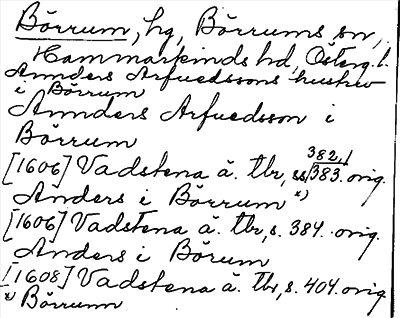 Börrum, hg, Börrums sn,
Hammarkinds hd, Österg. l.
Annders Arfuedssons hustrw
i Börrum
Annders Arfuedsson i
Börrum
[1606] Vadstena ä. tbr, ss 382, 383. orig.
Anders i Börrum x)
[1606] Vadstena ä. tbr, s. 384. orig.
Anders i Börum
[1608] Vadstena ä. tbr, s. 404. orig.
x) Börrum